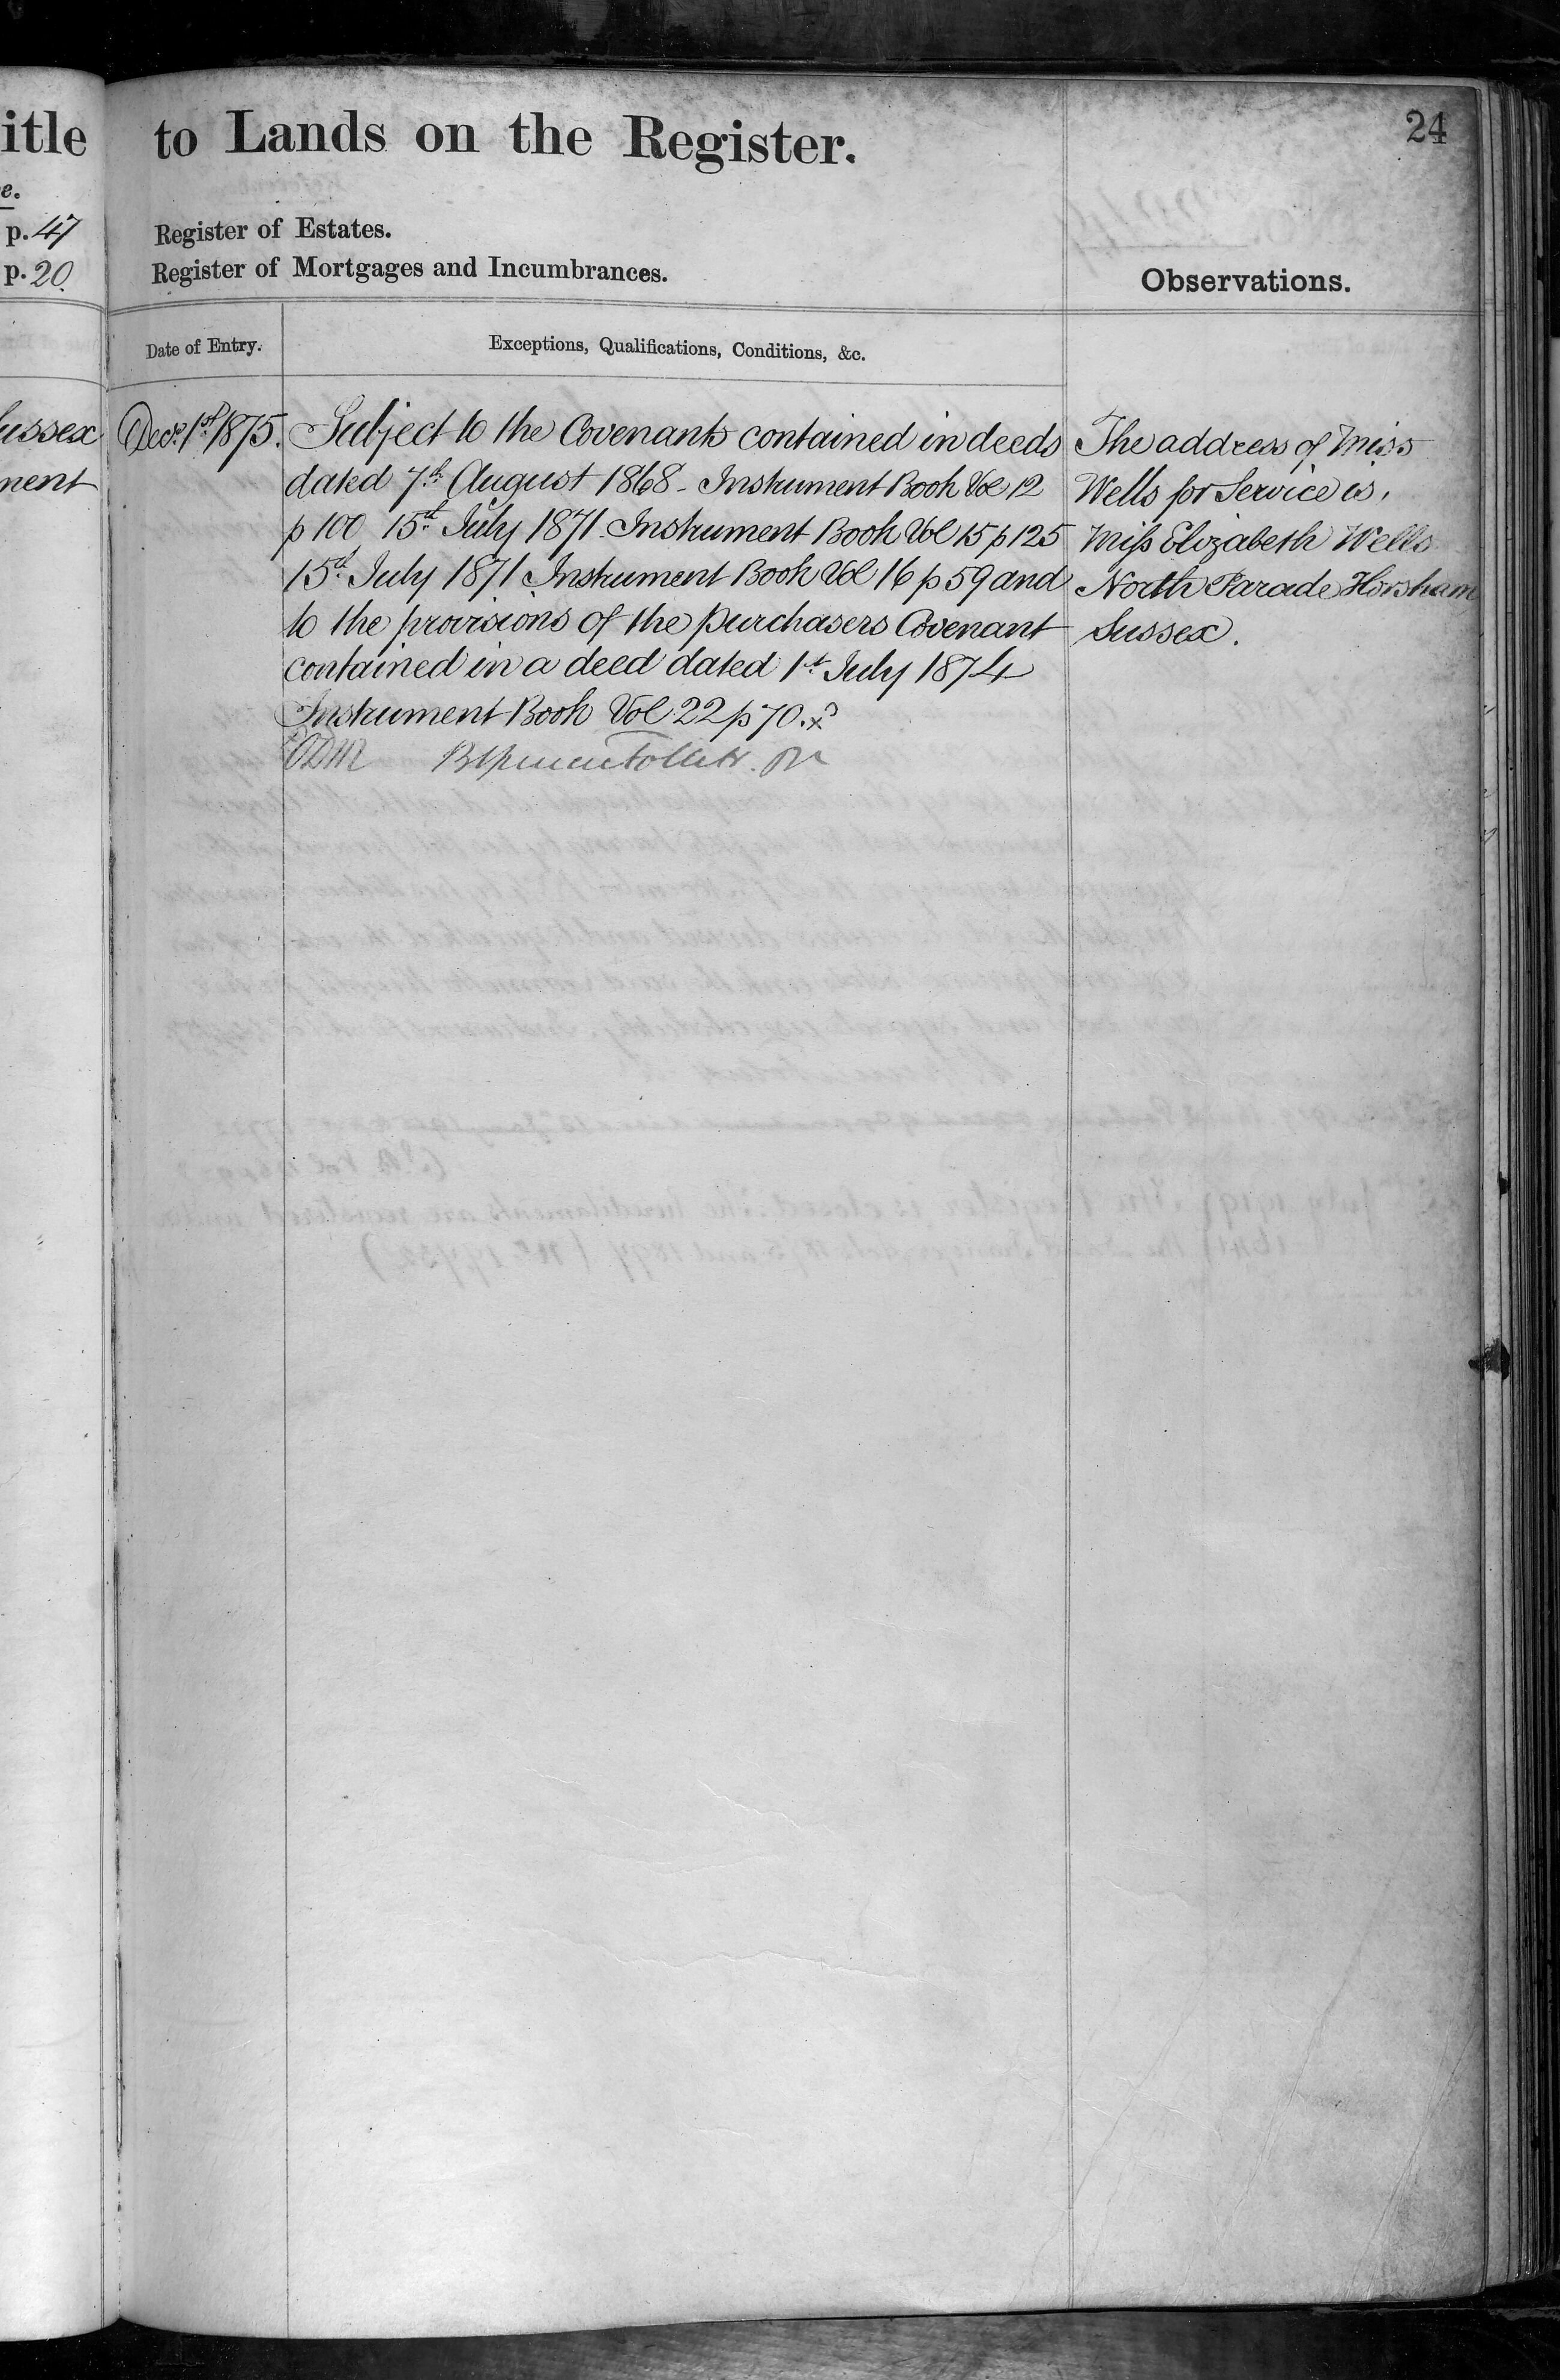 itle
e.
p. 47
p. 20.
ussex
ment
to Lands on the Register.
24
Register of Estates.
Register of Mortgages and Incumbrances.
Observations.
Date of Entry.
Exceptions, Qualifications, Conditions, &c.
Decr. 1st 1875.
Subject to the Covenants contained in deeds
dated 7th August 1868 - Instrument Book Vol 12
p 100 15th July 1871. Instrument Book Vol 15 p 125
15th July 1871. Instrument Book Vol 16 p 59 and
to the provisions of the purchasers Covenant
contained in a deed dated 1st July 1874
Instrument Book Vol. 22 p 70.
The address of Miss
Wells for Service is,
Miss Elizabeth Wells
North Parade Horsham
Sussex.